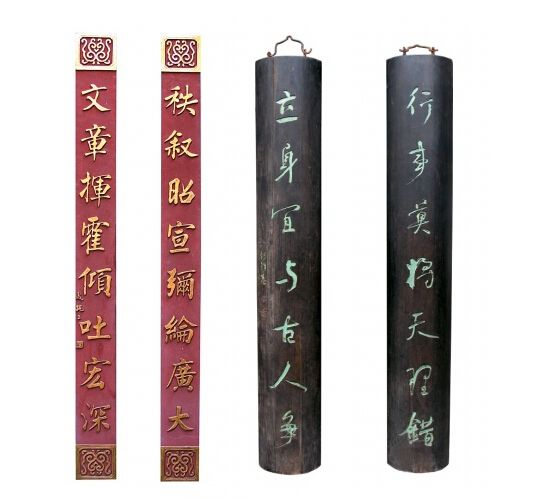 行事莫將天理錯
立身宜与古人爭
秩叙昭宣彌綸廣大
文章揮霍傾吐宏深